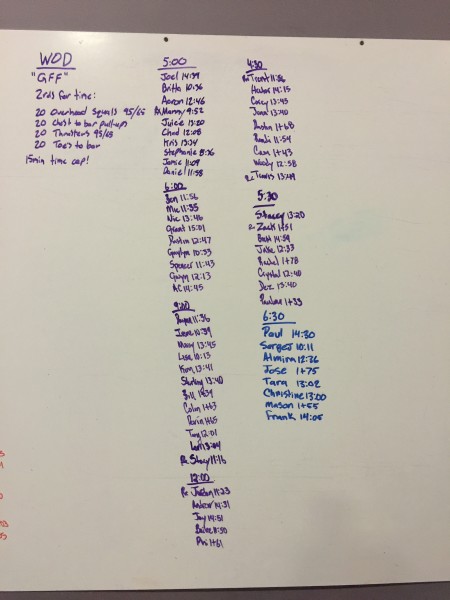 WOD
"GFF"
2rds for time:
20 Overhead Squats 95/65
20 Chest to bar pull-ups
20 Thrusters 95/65
20 Toes to bar
15min time cap!
5:00
Joel 14:39
Britta 10:36
Aaron 12:46
Rx Manny 9:52
Juice 13:20
Chad 12:08
Kris 13:24
Stephanie 8:36
Jamie 11:09
Daniel 11:58
6:00
Ben 11:56
Mic 11:35
Nic 13:46
Grant 15:01
Dustin 12:47
10:33
Spencer 11:43
Gwyn 12:13
AC 14:45
9:00
11:36
Irene 10:39
Missy 13:45
Lisa 10:13
Kim 13:41
Sterling 13:40
Bill 14:39
Colin 1+43
Darin 1+65
Tony 12:01
Lori 13:04
Rx Stacy 11:16
12:00
Rx Jordan 11:23
Andrew 14:31
Jay 14:51
8:50
1+61
4:30
Rx Trent 11:56
14:15
Corey 13:45
Jana 13:40
1+68
Randi 11:54
Cara 1+43
Woody 12:58
Rx Travis 13:49
5:30
Stacey 13:20
Rx Zach 1+51
Britt 14:59
Jake 12:33
Rachel 1+78
Crystal 12:40
Dez 13:40
Paulina 1+33
6:30
Paul 14:30
Sarges 10:11
Almira 12:36
Jose 1+75
Tara 13:02
Christine 13:00
Mason 1+55
Frank 14:05